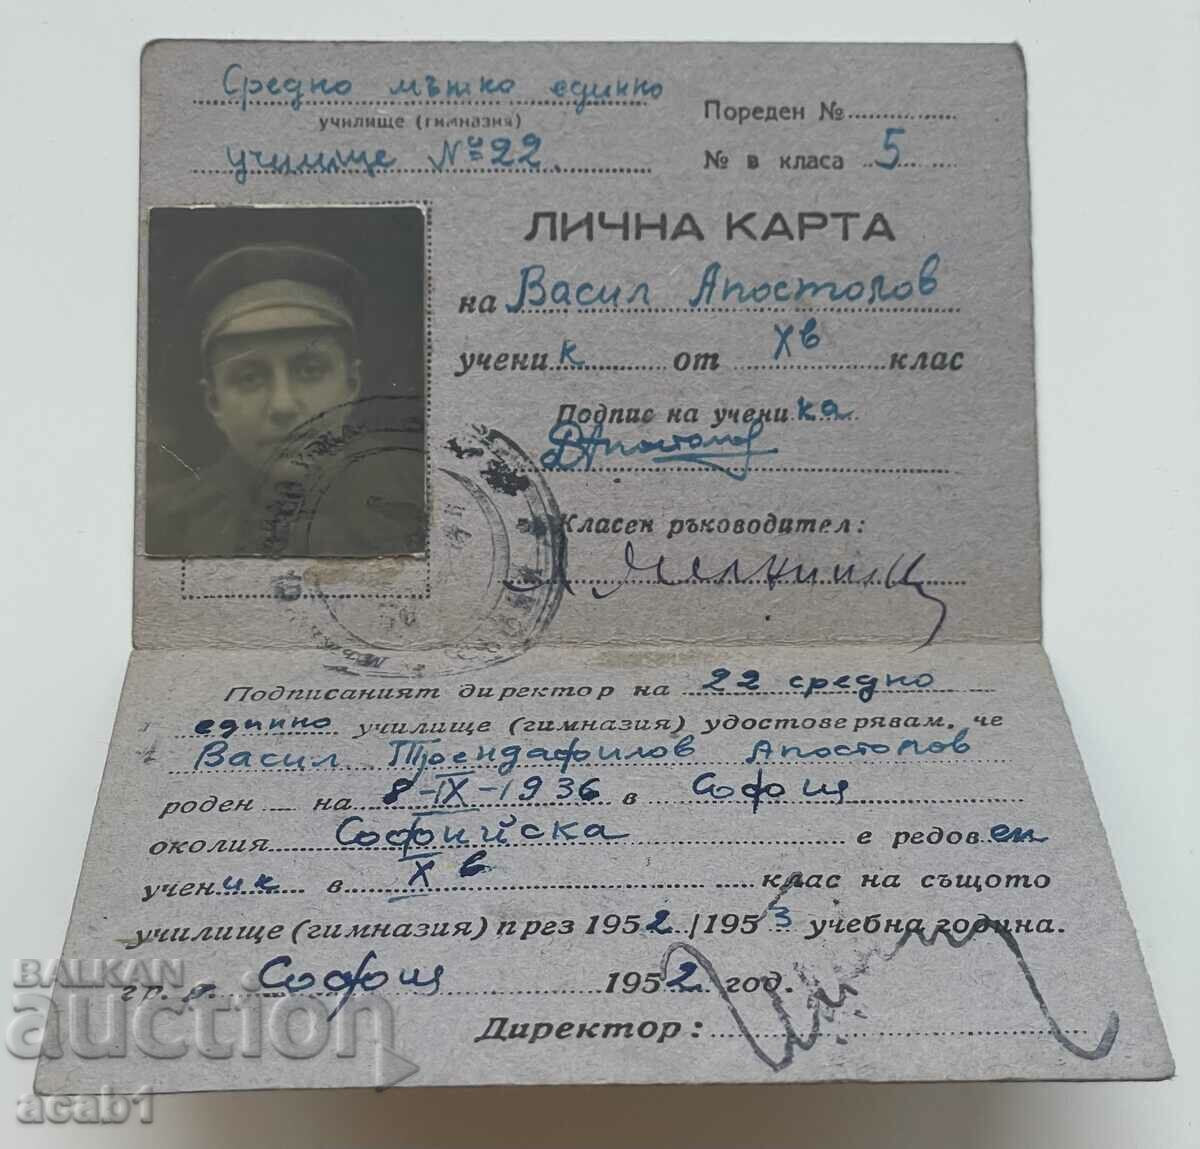 Средно мъжко единно
училище (гимназия)
училище № 22.
Пореден №
№ в класа 5
ЛИЧНА КАРТА
на Васил Апостолов
ученик от Xв клас
Подпис на ученика
ВАпостолов
Класен ръководител:
Подписаният директор на 22 средно
единно училище (гимназия) удостоверявам, че
Васил Трендафилов Апостолов
роден на 8-IX-1936 в София
околия Софийска е редовен
ученик в X в клас на същото
училище (гимназия) през 1952/1953 учебна година.
гр. София 1952 год.
Директор:
BALKAN
auction
acab1